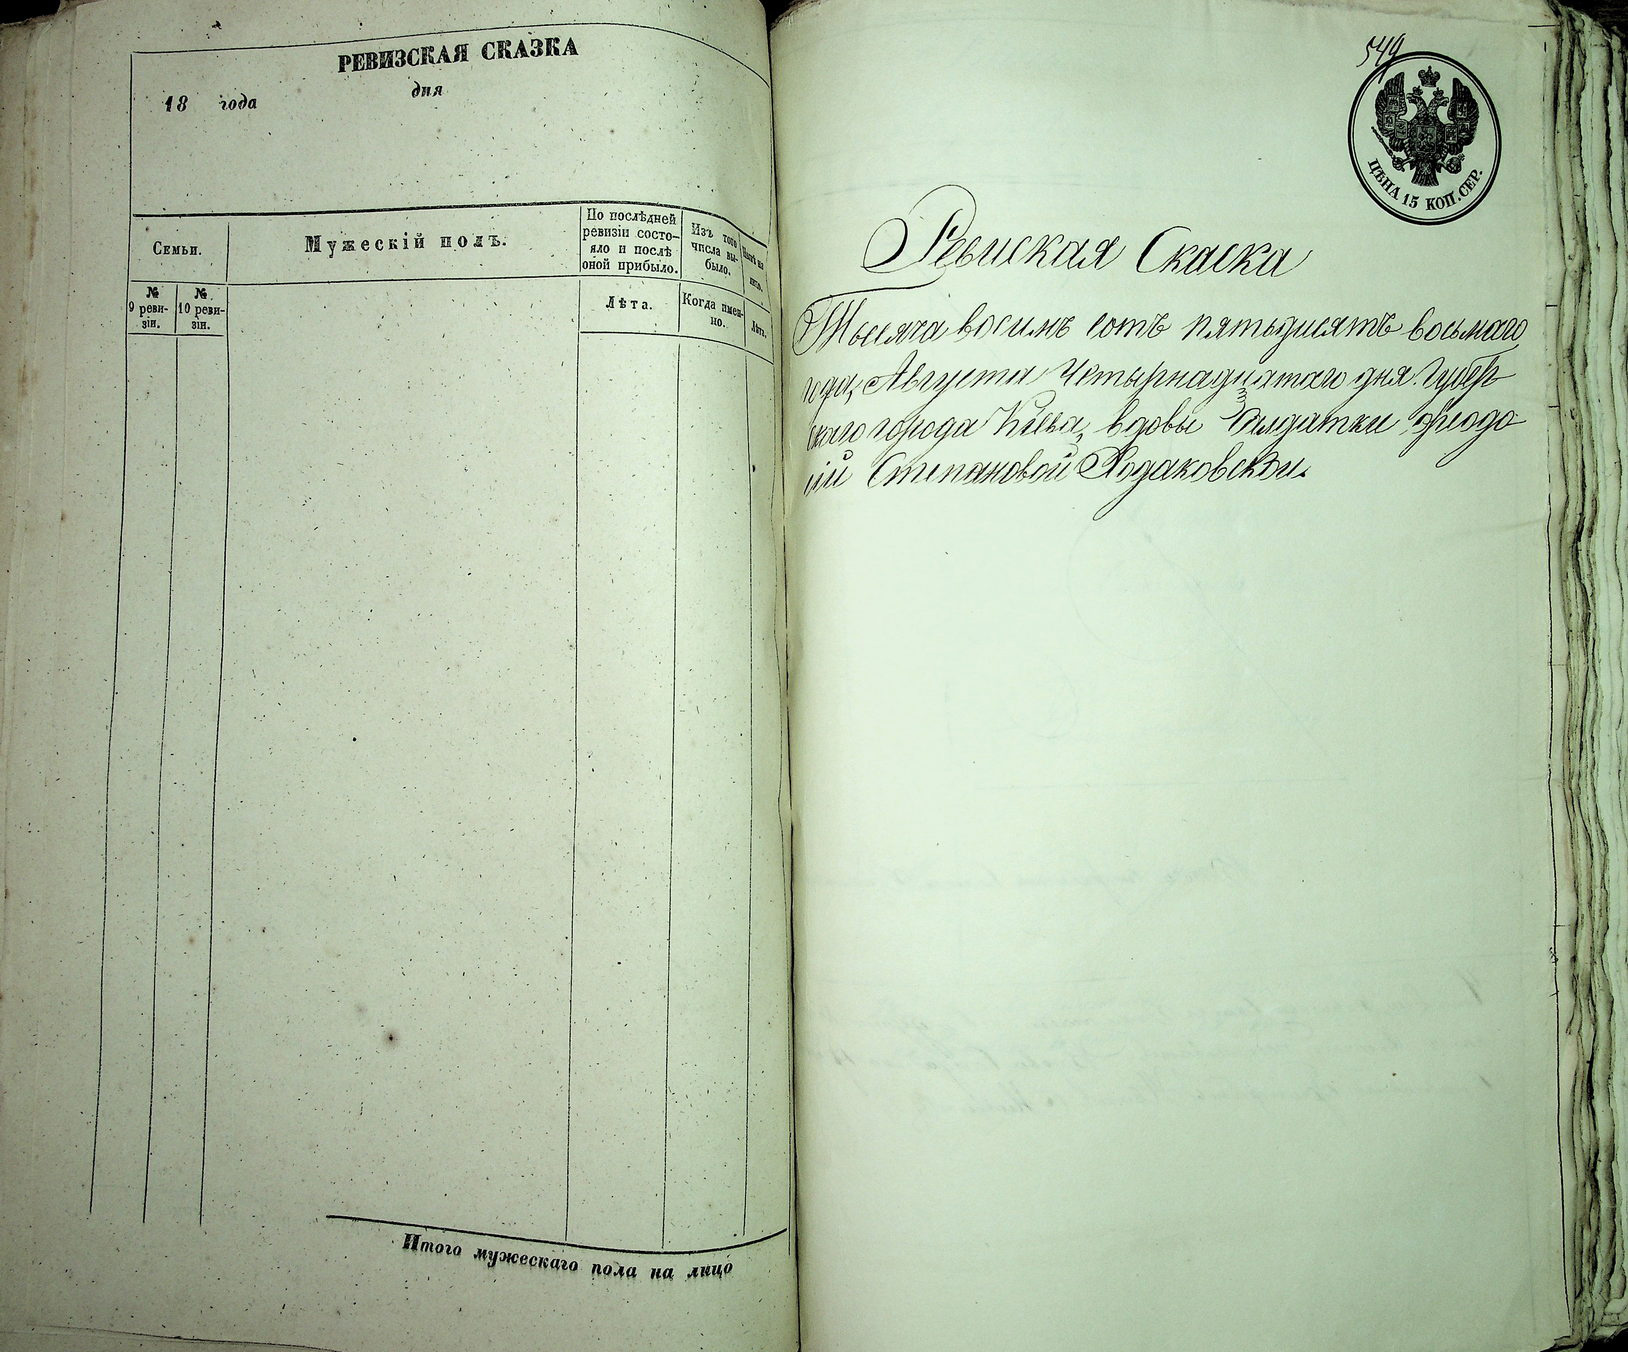 РЕВИЗСКАЯ СКАЗКА
18 года дня
Семьи.
№ 9 реви-
зіи.
№ 10 реви-
зіи.
Мужескій полъ.
По послѣдней
ревизіи состо-
яло и послѣ
оной прибыло.
Лѣта.
Изъ того
числа вы-
было.
Когда имен-
но.
Лѣта.
Итого мужескаго пола на лицо
549
ЦѢНА 15 КОП. СЕР.
Ревиская Скаска
Тысяча восимъ сотъ пятьдисятъ восьмаго
года, Августа Четырнадцатаго дня. Губер
скаго города Кіева, вдовы Салдатки Феодо
сіи Степановой Ходаковской.